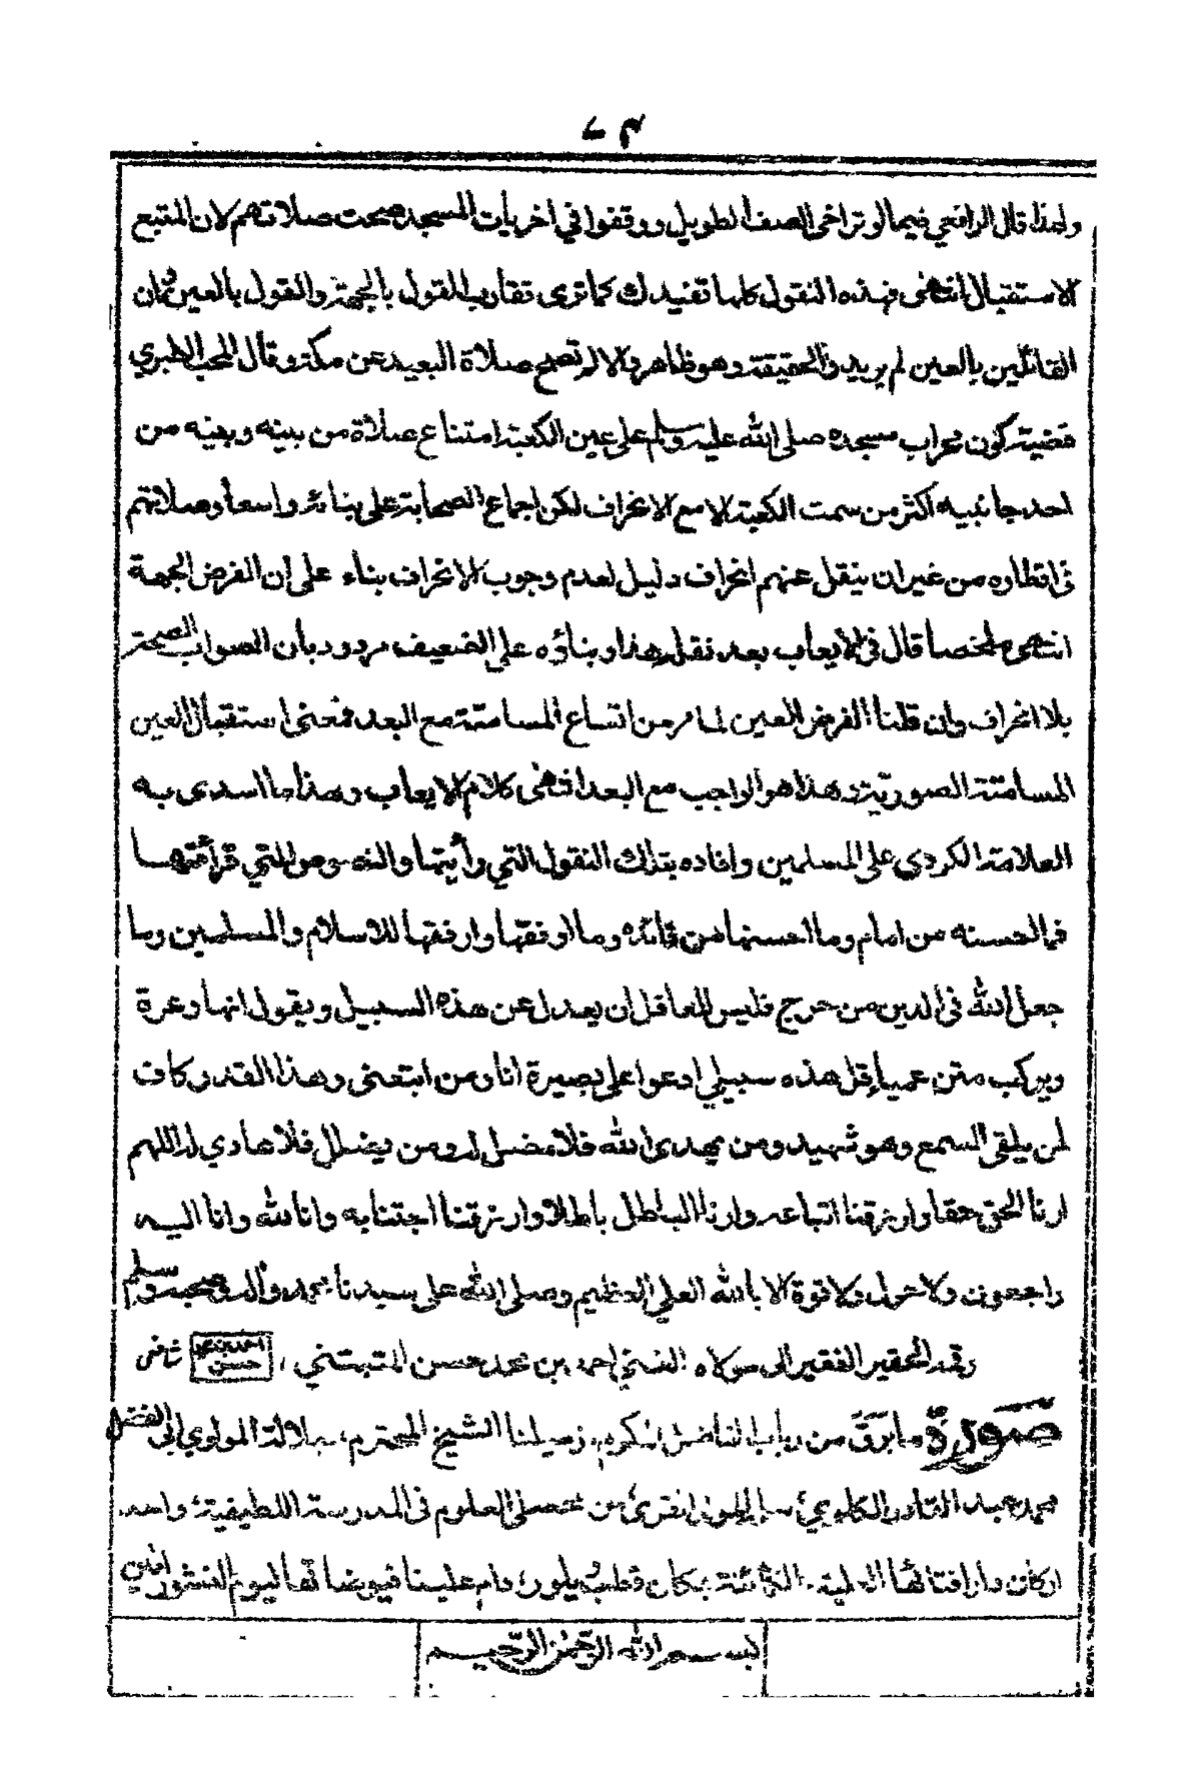 ولهذا قال الرافعي فيما لو تراخى الصف الطويل ووقفوا في اخريات المسجد صحت صلاتهم لان المتبع
الاستقبال انتهى فهذه النقول كلها تفيدك كما ترى تقارب القول بالجهة والقول بالعين وان
القائلين بالعين لم يريدوا الحقيقة وهو ظاهر والا لم تصح صلاة البعيد عن مكة وقال المحب الطبري
قضية كون محراب مسجده صلى الله عليه وسلم على عين الكعبة امتناع صلاة من بينه وبينه من
احد جانبيه اكثر من سمت الكعبة الا مع الانحراف لكن اجماع الصحابة على بنائه واسعا وصلاتهم
في اقطاره من غير ان ينقل عنهم انحراف دليل لعدم وجوب الانحراف بناء على ان الفرض الجهة
انتهى ملخصا قال في الايعاب بعد نقل هذا وبناؤه على الضعيف مردود بان الصواب الصحة
بلا انحراف وان قلنا الفرض العين لما مر من اتساع المسامتة مع البعد فمعنى استقبال العين
المسامتة الصورية وهذا هو الواجب مع البعد انتهى كلام الايعاب وهذا ما اسدى به
العلامة الكردي على المسلمين وافاده بتلك النقول التي رأيتها والنصوص التي قرأتها
فما احسنه من امام وما احسنها من فائده وما اوفقها وارفقها للاسلام والمسلمين وما
جعل الله في الدين من حرج فليس للعاقل ان يعدل عن هذه السبيل ويقول انها وعرة
ويركب متن عمياء قل هذه سبيلي ادعوا على بصيرة انا ومن اتبعنى وهذا القدر كاف
لمن يلقى السمع وهو شهيد ومن يهدى الله فلا مضل له ومن يضلل فلا هادي له اللهم
ارنا الحق حقا وارزقنا اتباعه وارنا الباطل باطلا وارزقنا اجتنابه وانا لله وانا اليه
راجعون ولا حول ولا قوة الا بالله العلي العظيم وصلى الله على سيدنا محمد وآله وصحبه وسلم
رقمه الحقير الفقير الى مولاه الغني احمد بن محمد حسن شافعى
صورة ما برق من الشيخ المحترم المولوي ابي الفضل
محمد عبد القادر من محصلى العلوم في المدرسة اللطيفية واحد
اركان دار افتائها العلية الكائنة بمكان قطب ويلور دام علينا فيوضاتها ليوم النشور
بسم الله الرحمن الرحيم